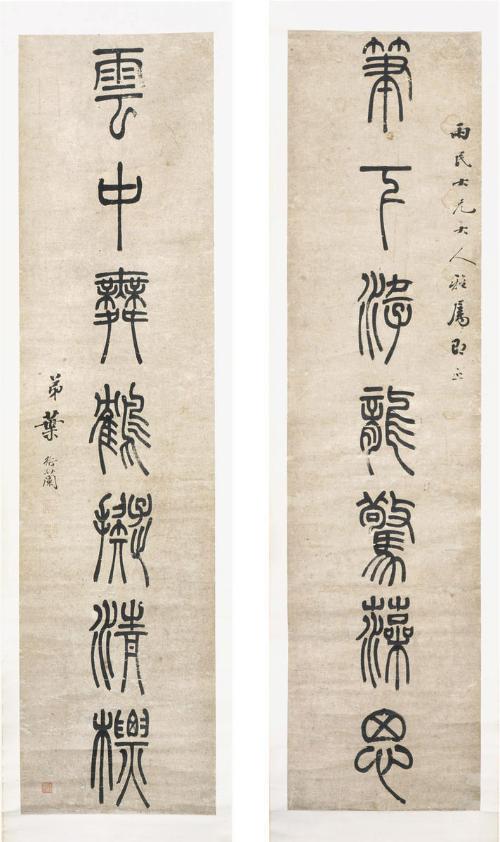 雨民大兄大人雅屬即正
筆下游龍驚藻思
雲中舞鶴清標
弟葉衍蘭